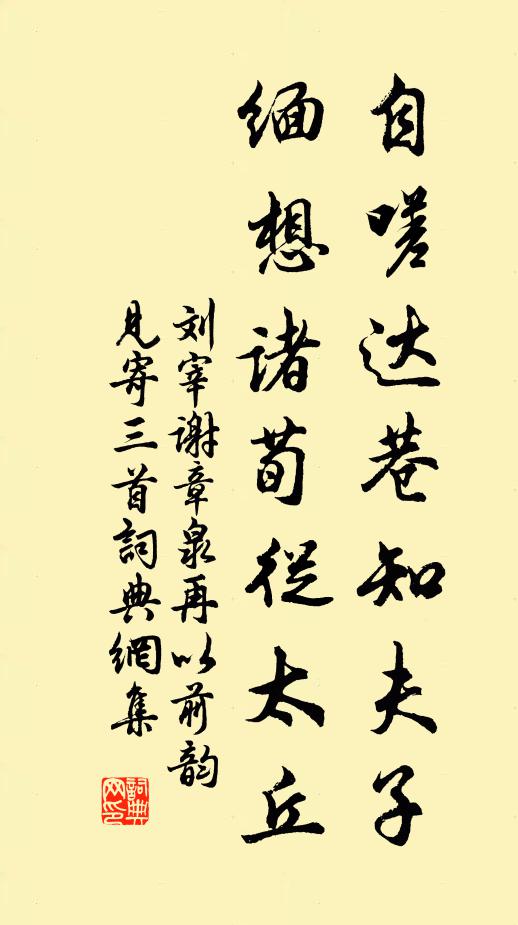 自嗟达巷知夫子
缅想诸荀従太丘
刘宰谢章泉再以前韵
见寄三首詞典網集
詞典
网印